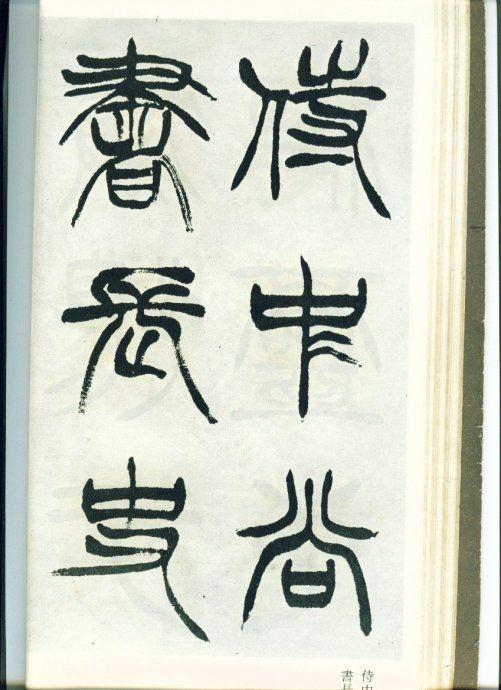 侍中尚
書長史
侍中
書長